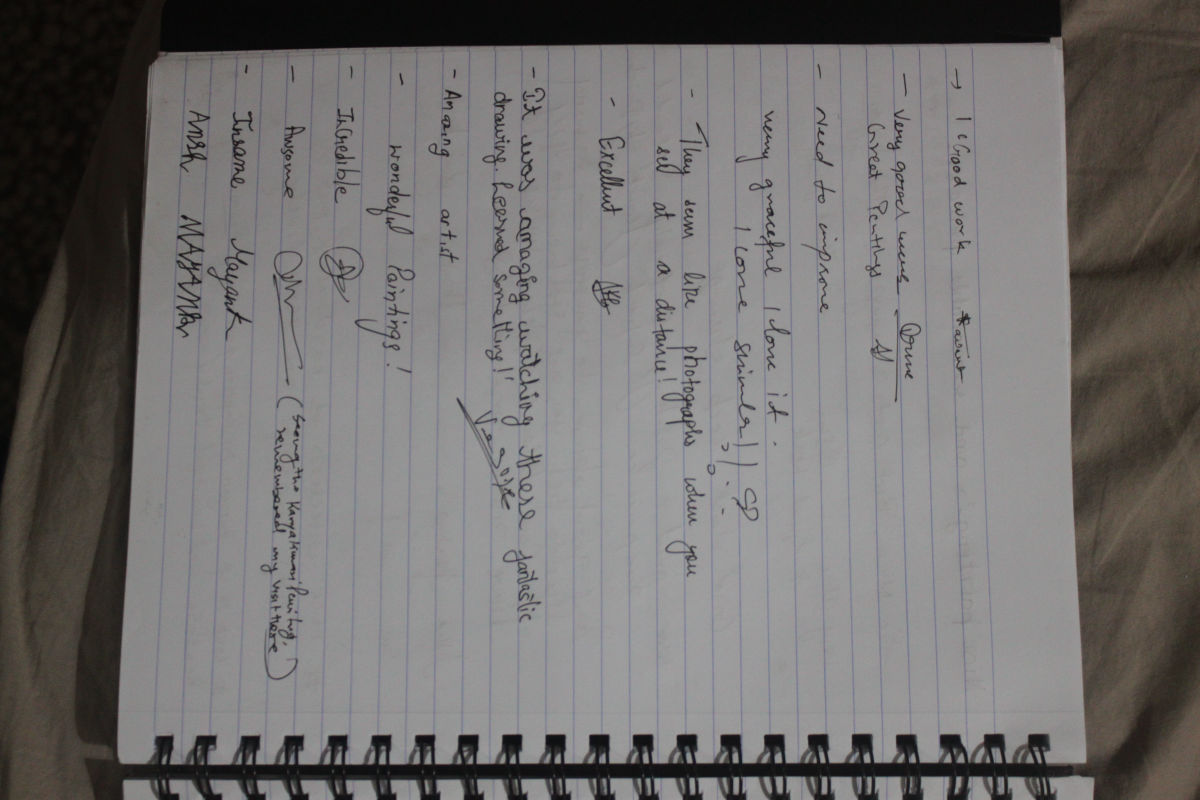 → 1 Good work
- Very good
Great Pentings
- Need to improve
very graceful I lone it.
I lone
- They seem like photographs when you
see at a distance!
- Excellent
- It was amazing watching these fantastic
drawing. Learned something!!
- Amazing artist
- wonderful Paintings!
- InCredible
- Awsome (Seeing the Kanyakumari Painting,
remembered my visit there)
- Insane Mayank
Ansh MAYANK